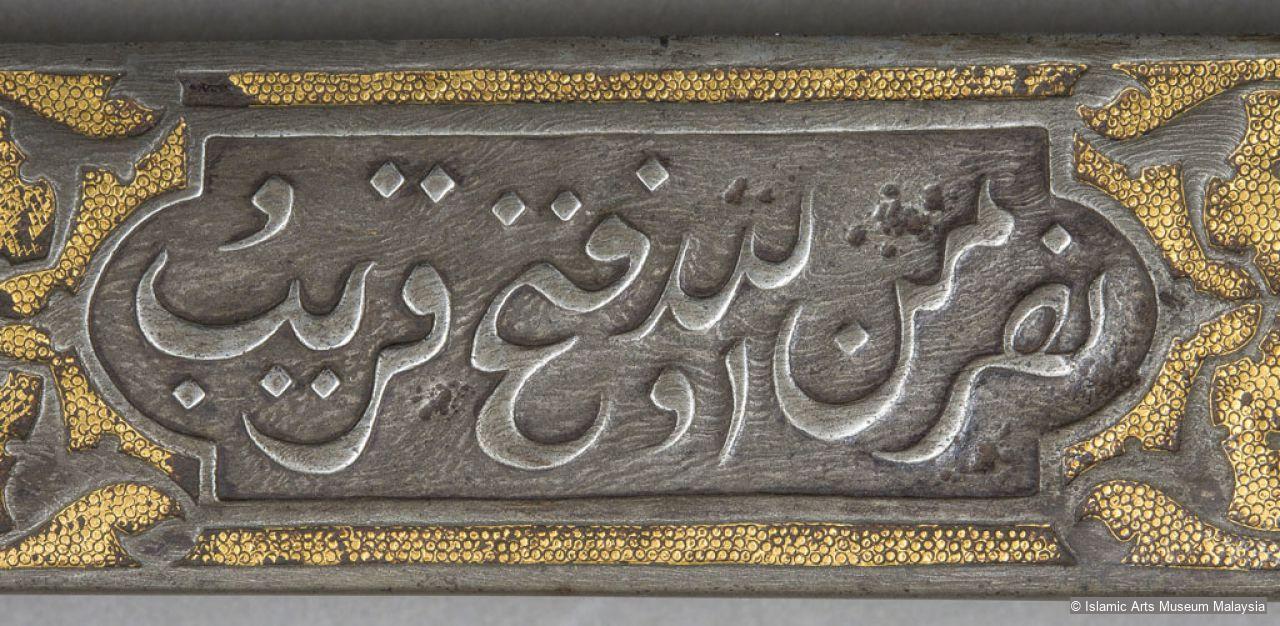 نصر من الله و فتح قریب
© Islamic Arts Museum Malaysia